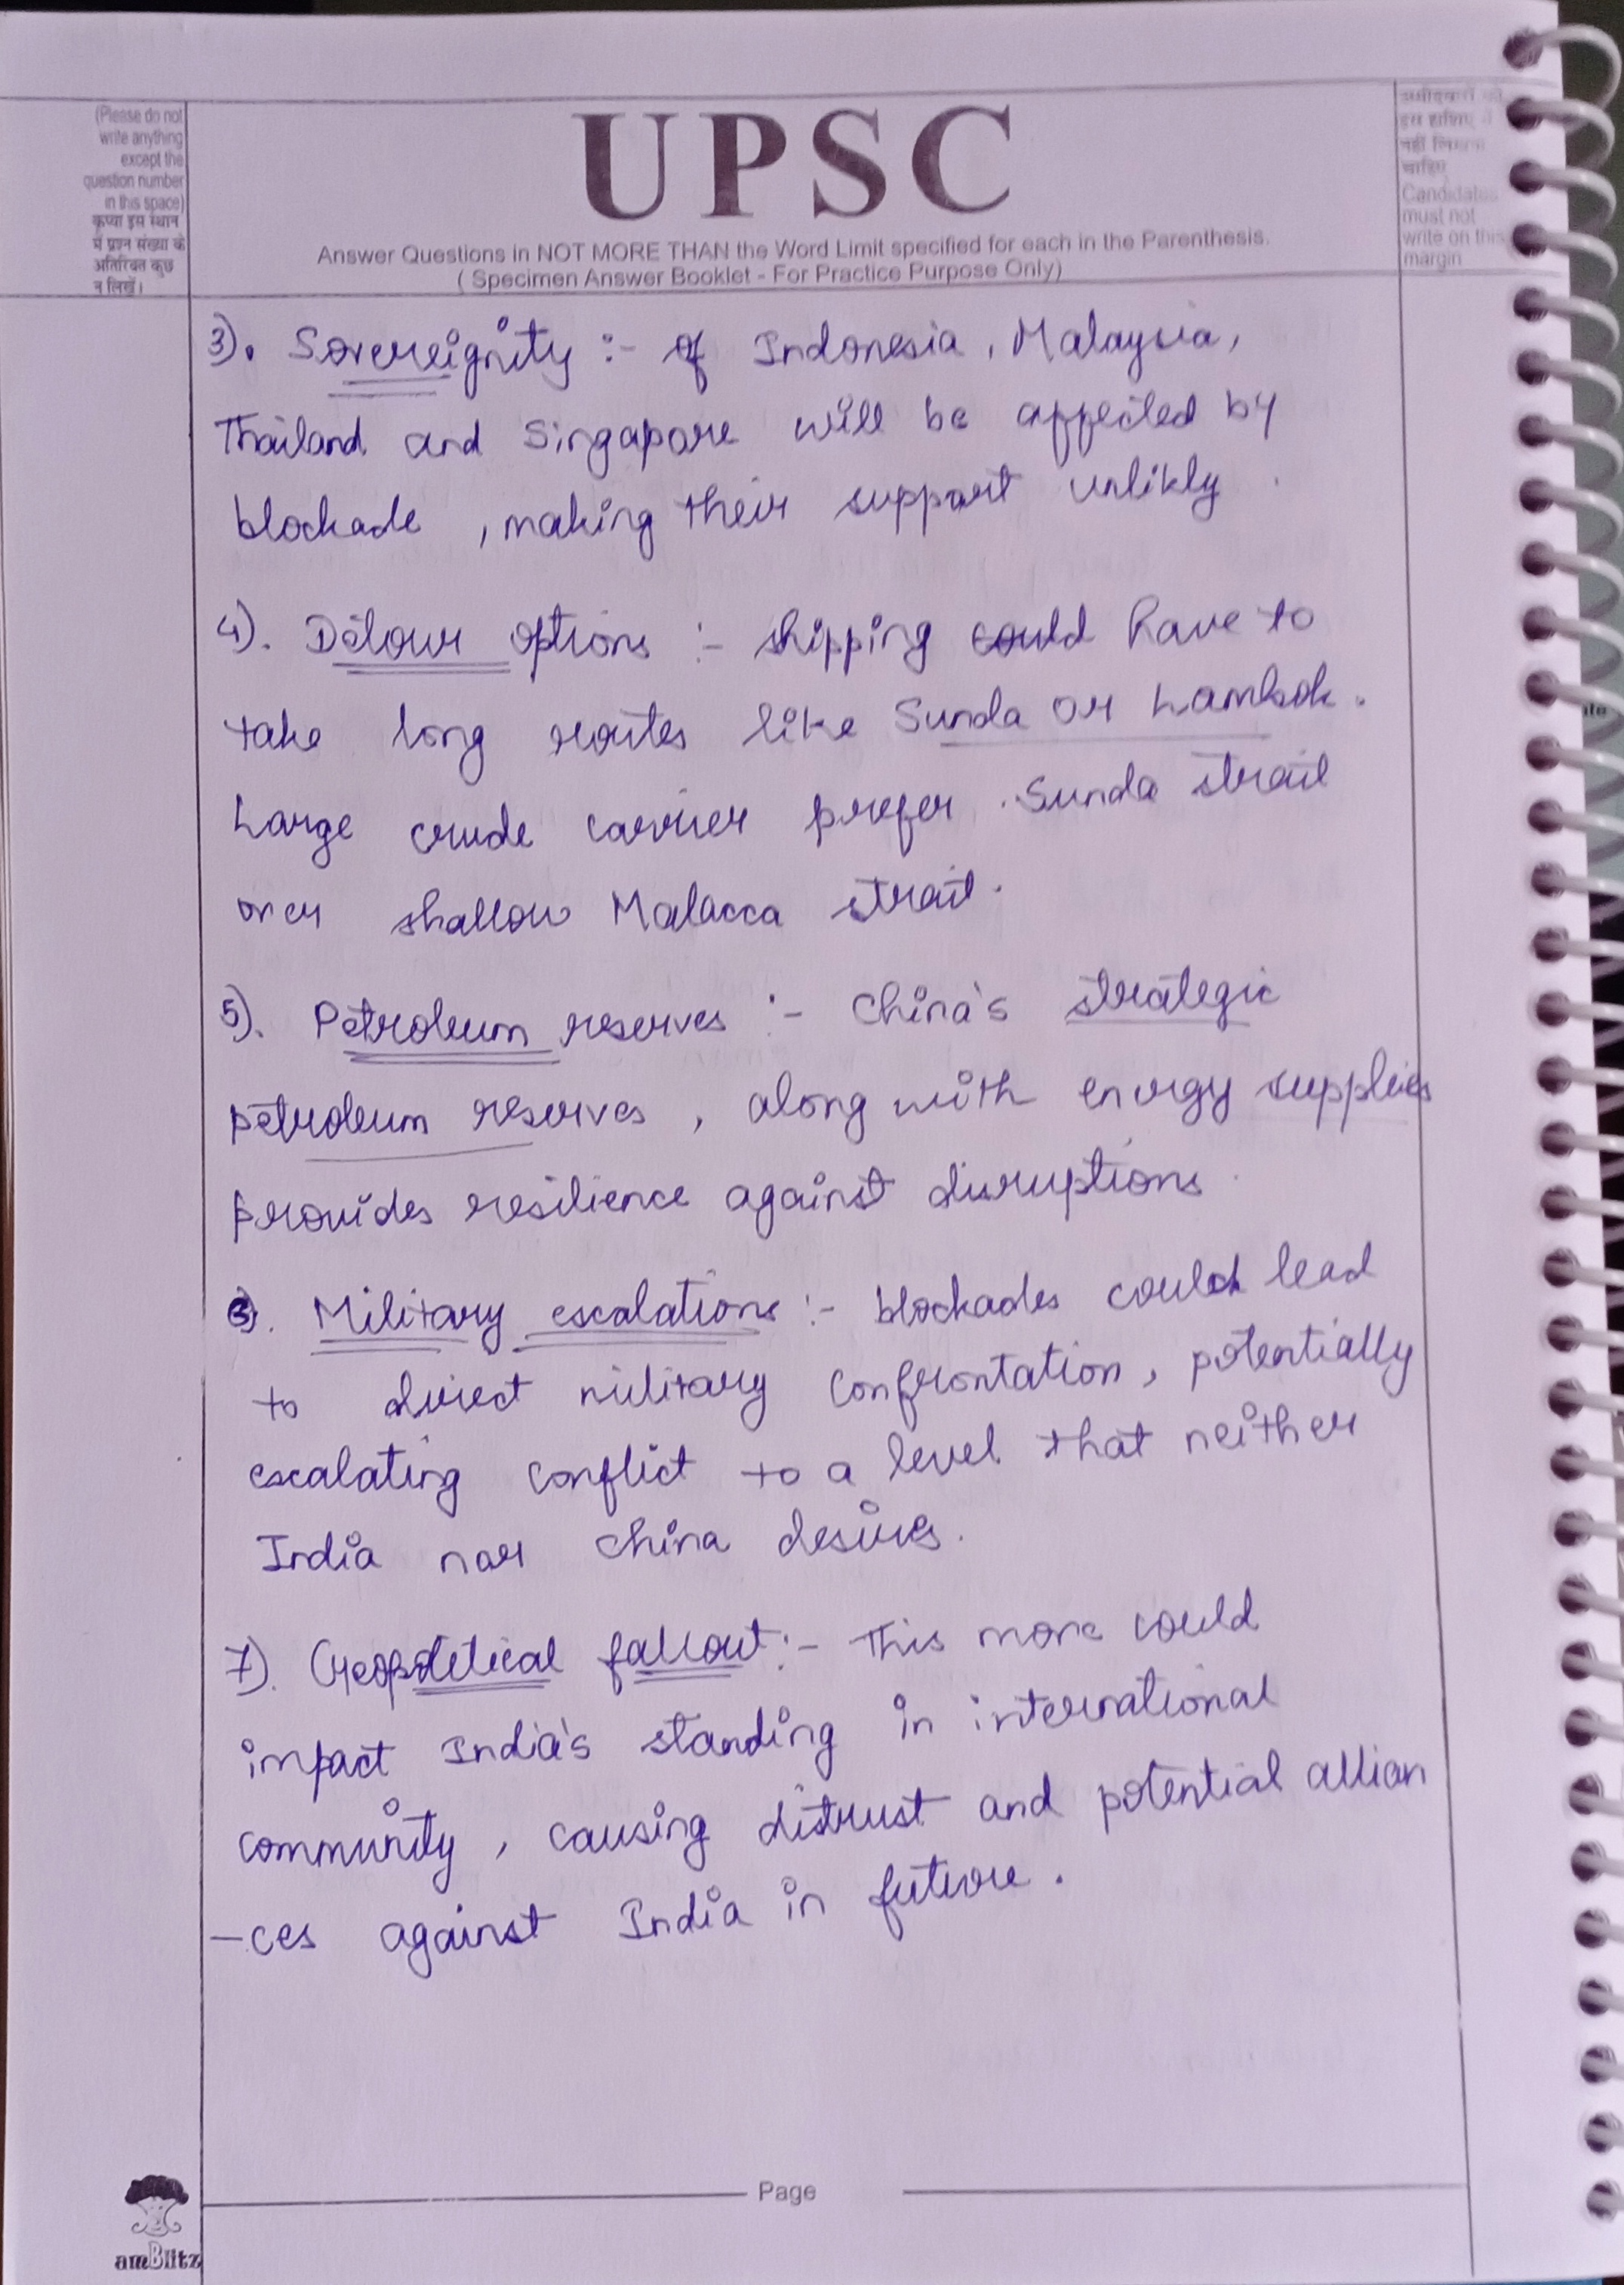 (Please do not
write anything
except the
question number
in this space)
कृप्या इस स्थान
में प्रश्न संख्या के
अतिरिक्त कुछ
न लिखें।
UPSC
Answer Questions in NOT MORE THAN the Word Limit specified for each in the Parenthesis.
( Specimen Answer Booklet - For Practice Purpose Only)
उम्मीदवारों को
इस हाशिए में
नहीं लिखना
चाहिए
Candidates
must not
write on this
margin
3). Sovereignity :- of Indonesia, Malaysia,
Thailand and Singapore will be affected by
blockade , making their support unlikly .
4). Detour options :- shipping could have to
take long routes like Sunda or Lambok.
Large crude carrier prefer Sunda strait
over shallow Malacca strait.
5). Petroleum reserves :- China's strategic
petroleum reserves , along with energy supplies
provides resilience against disruptions .
Military escalations :- blockades could lead
to direct military confrontation, potentially
escalating conflict to a level that neither
India nor China desires.
7). Geopolitical fallout :- This move could
impact India's standing in international
community , causing distrust and potential allian
-ces against India in future .
Page
amBlitz